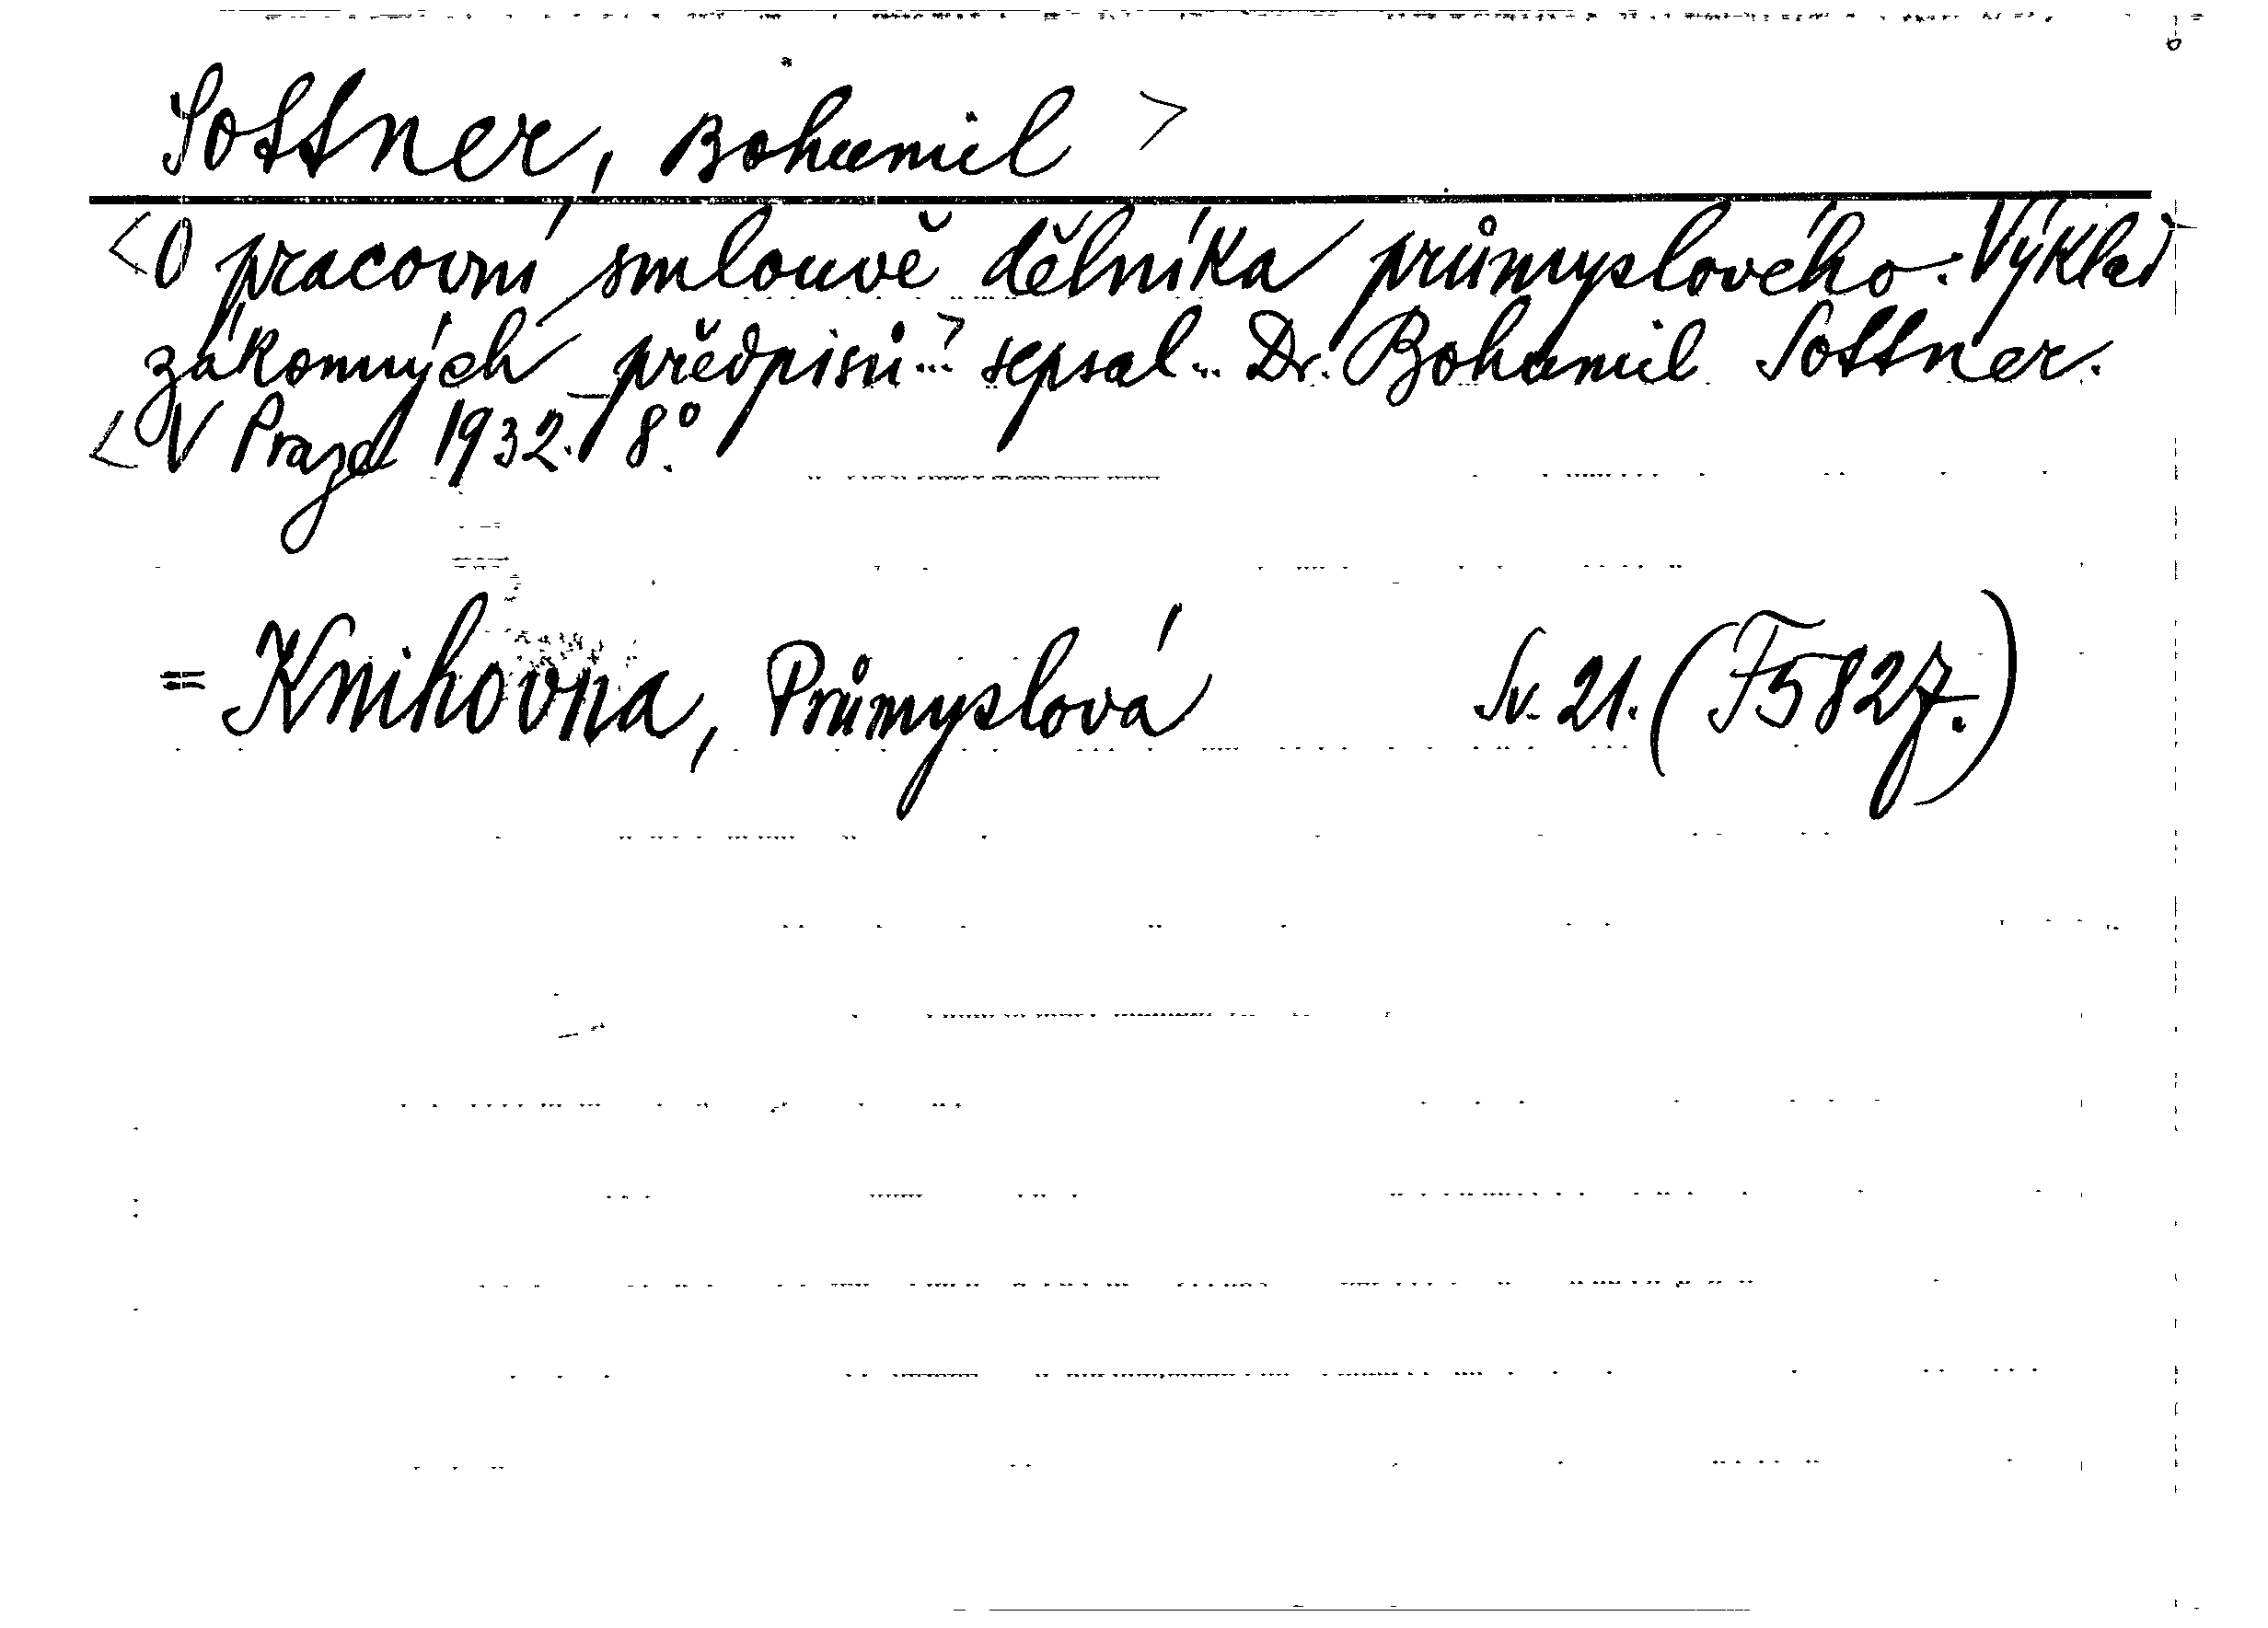 Sottner, Bohumil >
<O pracovní smlouvě dělníka průmyslového: Výklad
zákonných předpisů...> sepsal... Dr. Bohumil Sottner.
<V Praze 1932. 8°.
= Knihovna, Průmyslová Sv. 21. (F5827.)